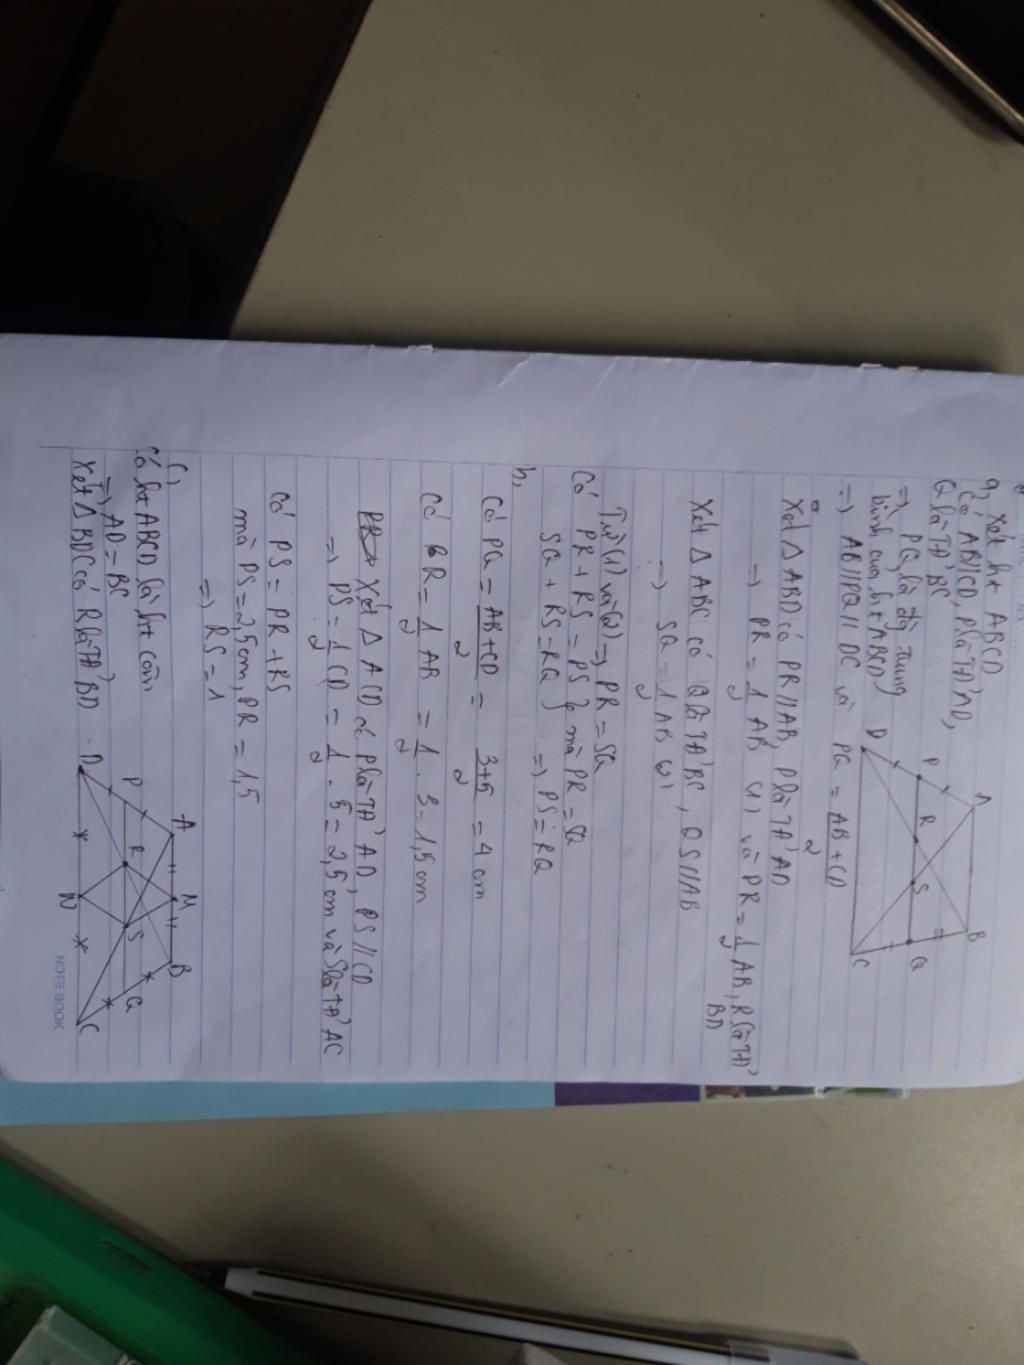 a, Xét ht ABCD
Có AB//CD, P là TĐ' AD,
Q là TĐ' BC
=> PQ là đg trung
bình của ht ABCD
=> AB//PQ//DC và PQ = AB+CD
2
A
B
P
R
S
Q
D
C
Xét Δ ABD có PR//AB, P là TĐ' AD
=> PR = 1 AB (1) và PR = 1 AB, R là TĐ'
2
2
BD
Xét Δ ABC có Q là TĐ' BC, QS//AB
=> SQ = 1 AB (2)
2
Từ (1) và (2) => PR = SQ
Có PR + RS = PS } mà PR = SQ
SQ + RS = RQ } => PS = RQ
b,
Có PQ = AB+CD = 3+5 = 4 cm
2
2
Có PR = 1 AB = 1 . 3 = 1,5 cm
2
2
Xét Δ ACD có P là TĐ' AD, PS//CD
=> PS = 1 CD = 1 . 5 = 2,5 cm và S là TĐ' AC
2
2
Có PS = PR + RS
mà PS = 2,5 cm, PR = 1,5
=> RS = 1
c,
Có ht ABCD là ht cân
=> AD = BC
Xét Δ BDC có R là TĐ' BD
A
M
B
P
R
S
Q
D
N
C
NOTE BOOK